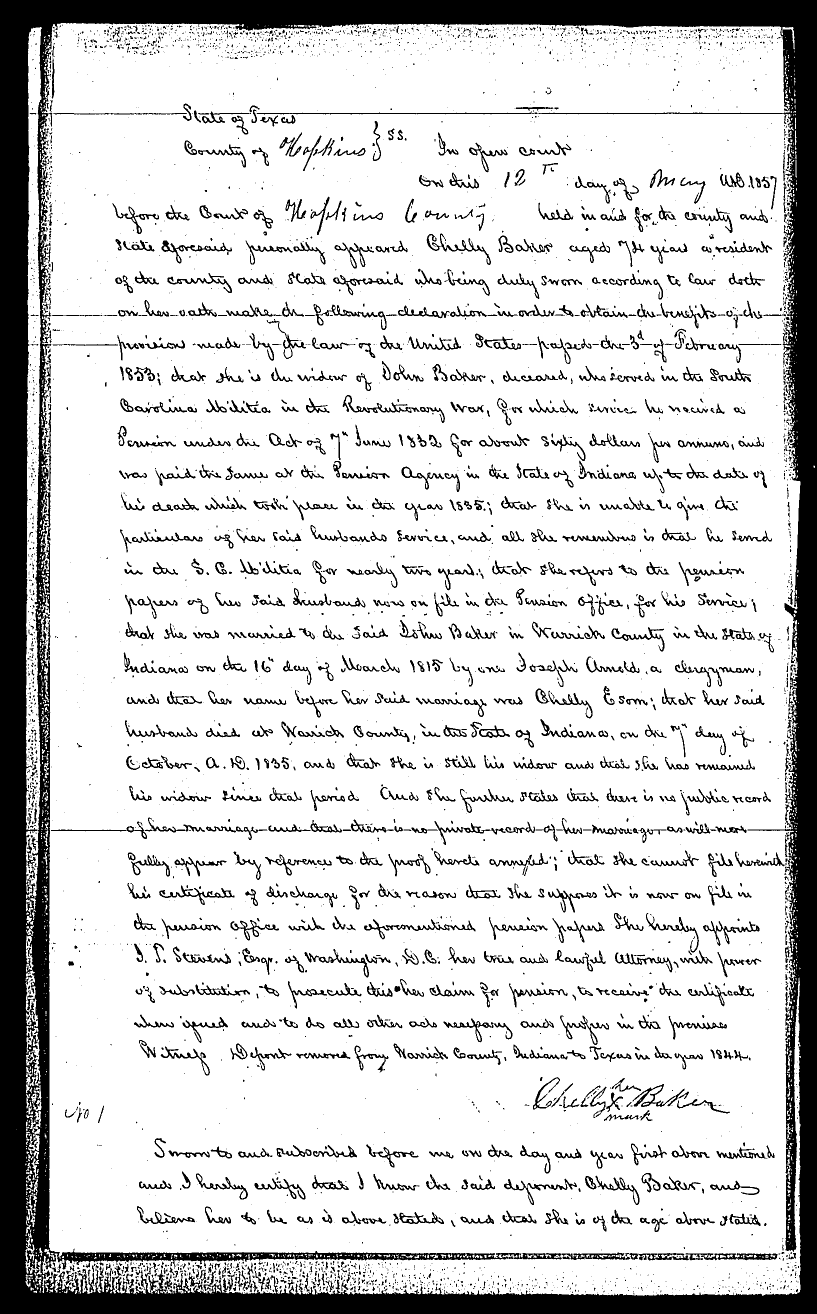 State of Texas
County of Hopkins } SS. In open court
On this 12th day of May A.D. 1857
before the Court of Hopkins County held in and for the county and
State aforesaid personally appeared Chelly Baker aged 74 years a resident
of the county and State aforesaid who being duly sworn according to law doth
on her oath make the following declaration in order to obtain the benefits of the
provision made by the law of the United States passed the 3d of February
1853; that she is the widow of John Baker, deceased, who served in the South
Carolina Militia in the Revolutionary War, for which service he received a
Pension under the Act of 7th June 1832 for about Sixty dollars per annum, and
was paid the same at the Pension Agency in the State of Indiana up to the date of
his death which took place in the year 1835; that she is unable to give the
particulars of her said husbands service, and all she remembers is that he served
in the S. C. Militia for nearly two years; that she refers to the pension
papers of her said husband now on file in the Pension Office, for his service;
that she was married to the said John Baker in Warrick County in the State of
Indiana on the 16th day of March 1815 by one Joseph Arnold, a clergyman,
and that her name before her said marriage was Chelly Esom; that her said
husband died at Warrick County, in the State of Indiana, on the 7th day of
October, A. D. 1835, and that she is still his widow and that she has remained
his widow since that period And she further states that there is no public record
of her marriage and that there is no private record of her marriage, as will more
fully appear by reference to the proof hereto annexed; that she cannot file herewith
his certificate of discharge for the reason that she supposes it is now on file in
the pension office with the aforementioned pension papers She hereby appoints
I. P. Stevens, Esqr. of Washington, D.C. her true and lawful Attorney, with power
of substitution, to prosecute this her claim for pension, to receive the certificate
when issued and to do all other acts necessary and proper in the premises
Witness Depont removed from Warrick County, Indiana to Texas in the year 1844.
her
Chelly X Baker
mark
No 1
Sworn to and subscribed before me on the day and year first above mentioned
and I hereby certify that I know the said deponent, Chelly Baker, and
believe her to be as is above stated, and that she is of the age above stated.